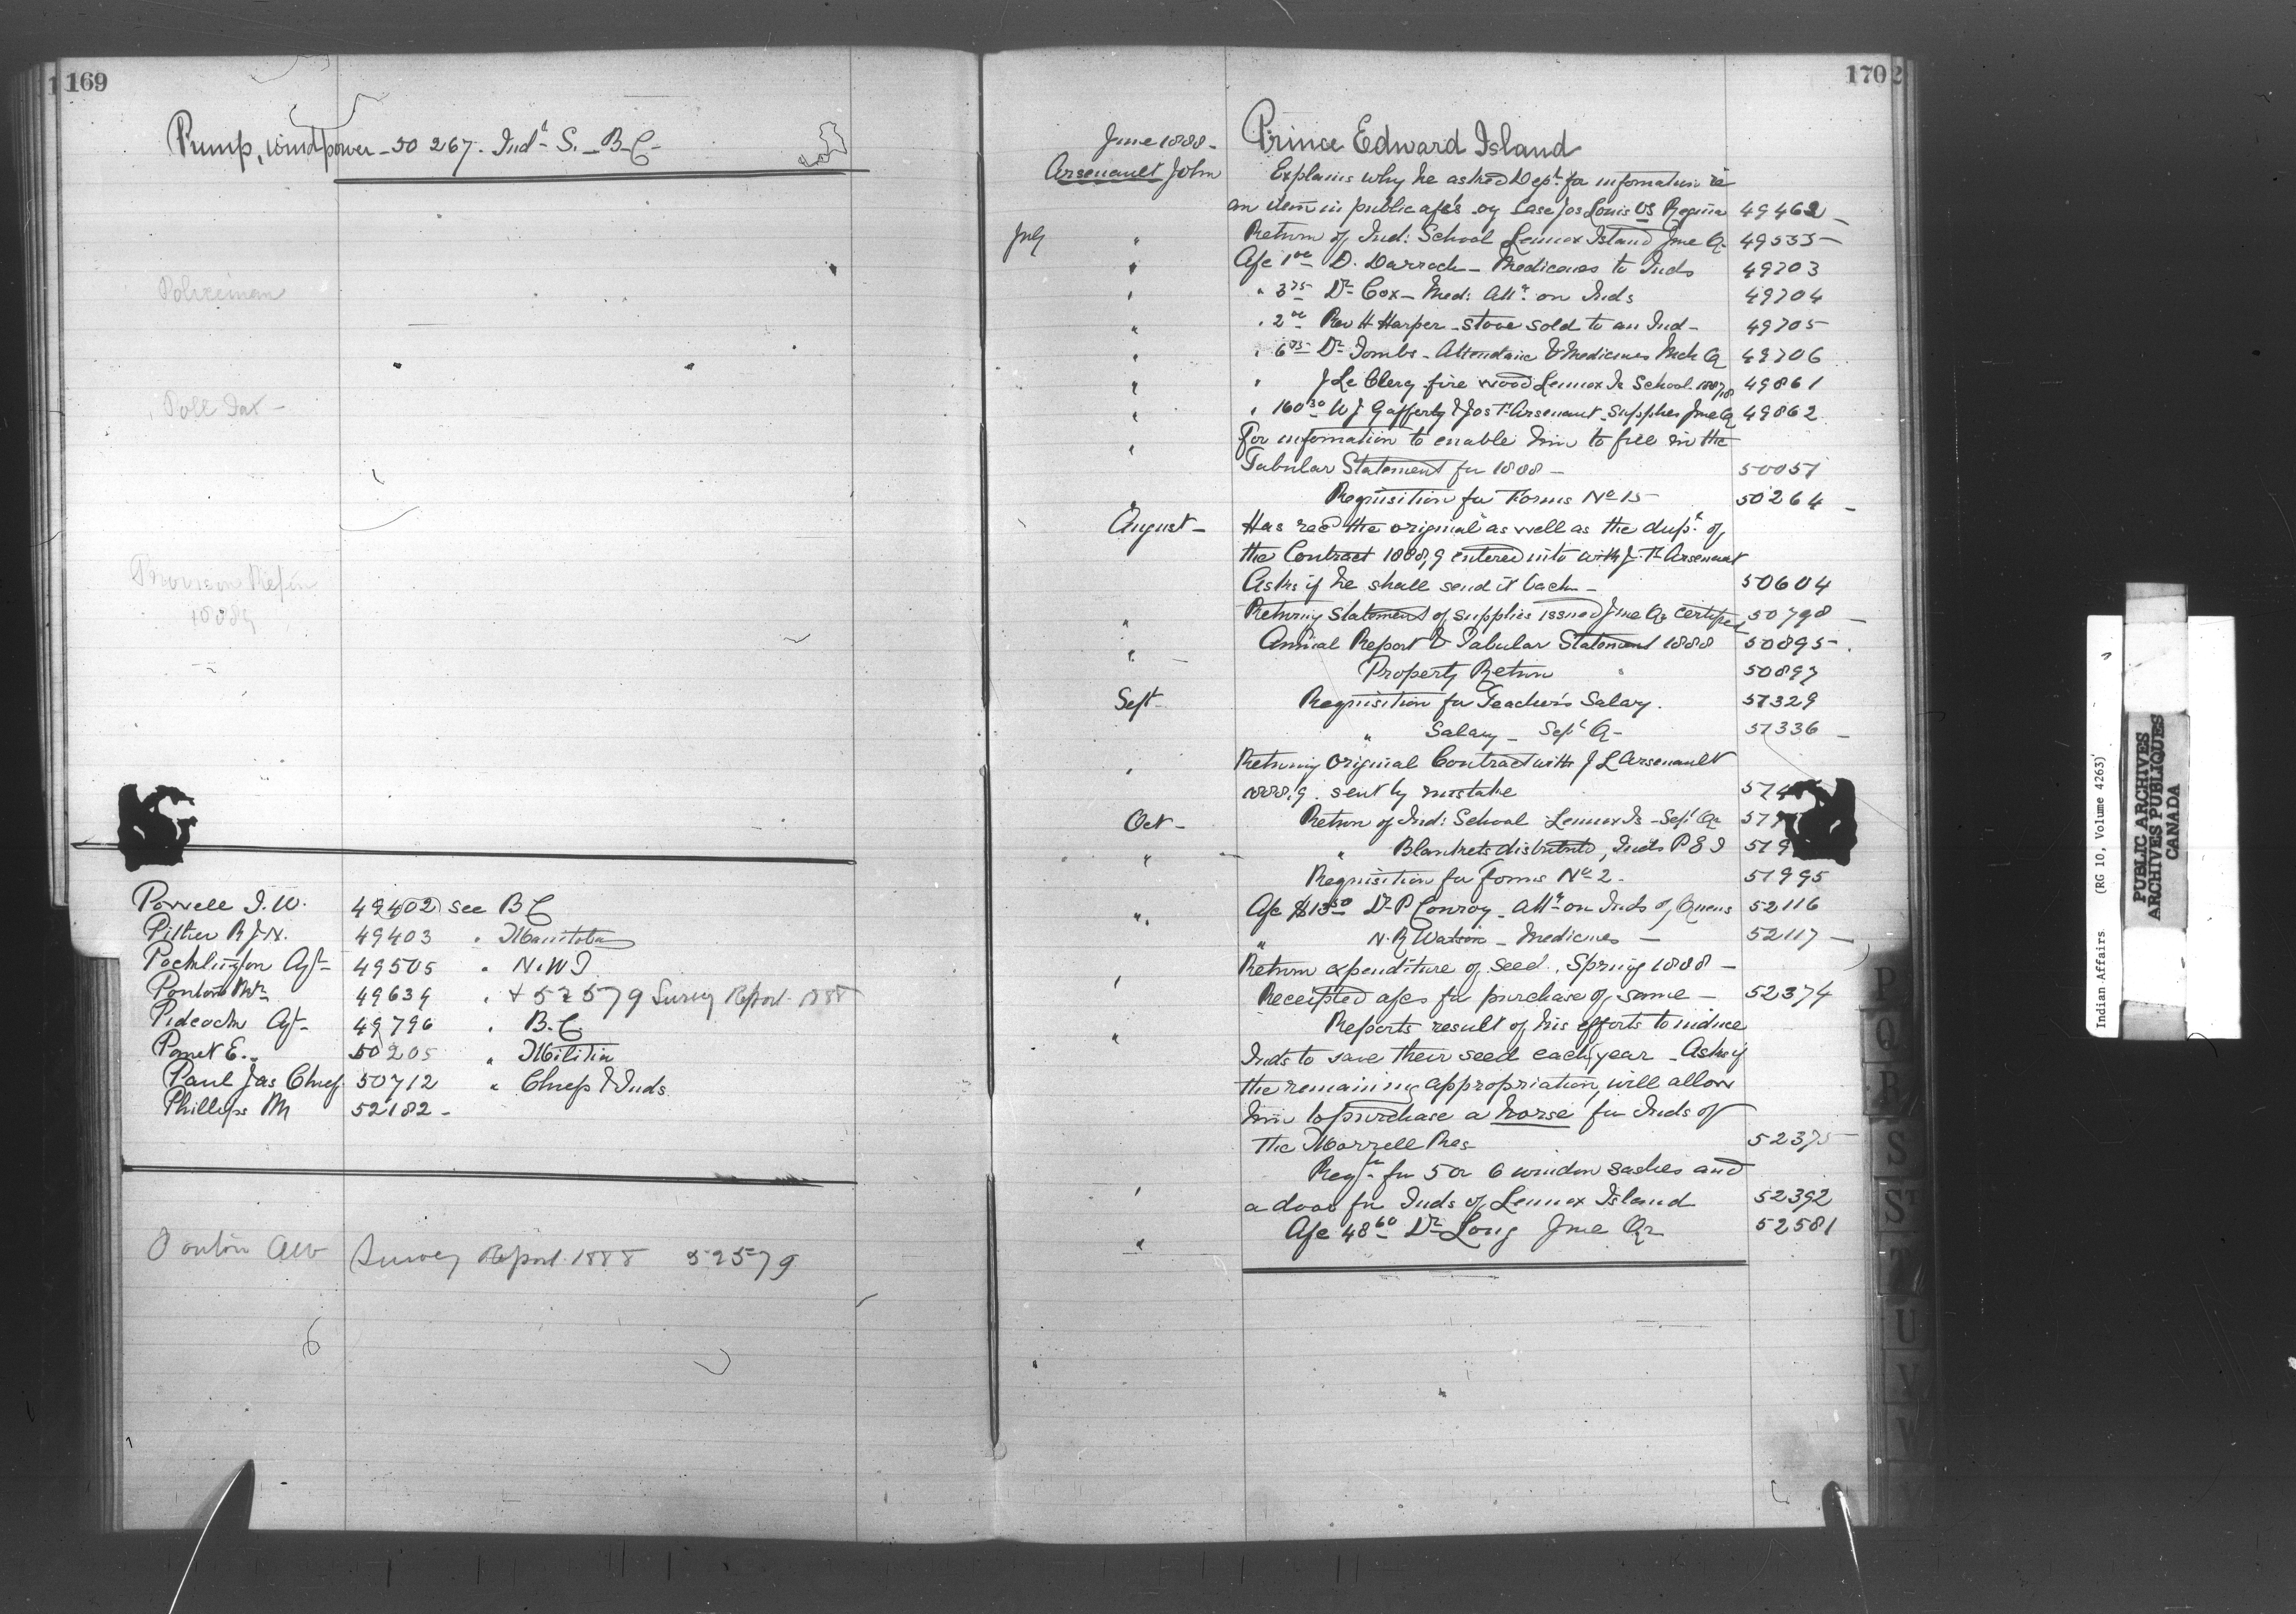 169
Pump, windpower - 50 267. Ind. S. - B.C.
Policeman
Poll Tax -
Powell I. W. 49402 see B C
Pither R. J. N. 49403 " Manitoba
Pocklington Agt 49505 " N.W.T
Ponton Mr 49639 " + 52579 Survey Report 1888
Pidcock Agt 49796 " B.C.
Panet E. 50205 " Militia
Paul Jas Chief 50712 " Chiefs & Inds
Phillips M 52182 -
Ponton AW Survey Report 1888 52579
170
June 1888 - Prince Edward Island
Arsenault John Explains why he asked Dept. for information re
an item in public a/c's Case Jos Louis vs Regina 49462
July " Return of Ind: School Lennox Island June Qr 49535
" A/c 1 00 D. Darroch - Medicines to Inds 49703
" " 3 75 Dr Cox - Med: Att. on Inds 49704
" " 2 00 Rev H Harper - stove sold to an Ind - 49705
" " 6 05 Dr Tombs - Attendance & Medicines Mch Q 49706
" " J Le Clerg fire wood Lennox Is School 1887/8 49861
" " 160 30 W J Gafferty & Jos T. Arsenault Supplies June Q 49862
" For information to enable him to fill in the
Tabular Statement for 1888 - 50051
Requisition for Forms No 15 50264
August - Has recd the original as well as the dupt. of
the Contract 1888,9 entered into with J. T. Arsenault
Asks if he shall send it back - 50604
" Returning Statement of supplies issued June Qr certified 50798
" Annual Report & Tabular Statement 1888 50895
Property Return " 50897
Sept - Requisition for Teacher's Salary. 51329
" Salary - Sept Q - 51336
" Returning original Contract with J L Arsenault
1888,9. sent by mistake 514
Oct - Return of Ind: School Lennox Is - Sept Qr
" " Blankets distributed, Inds P E I 519
Requisition for forms No 2. 51995
" A/c $13 50 Dr P Conroy - Att. on Inds of Queens 52116
" N. R Watson - Medicines - 52117
" Return expenditure of Seed, Spring 1888 -
Receipted a/cs for purchase of same - 52374
" Reports result of his efforts to induce
Inds to save their seed each year - Asks if
the remaining appropriation will allow
him to purchase a horse for Inds of
the Morrell Res 52375
Reqn for 5 or 6 window sashes and
" a door for Inds of Lennox Island 52392
" A/c 48 60 Dr Long June Qr 52581
P
Q
R
S
ST
T
U
V
W
Y
Indian Affairs (RG 10, Volume 4263)
PUBLIC ARCHIVES
ARCHIVES PUBLIQUES
CANADA